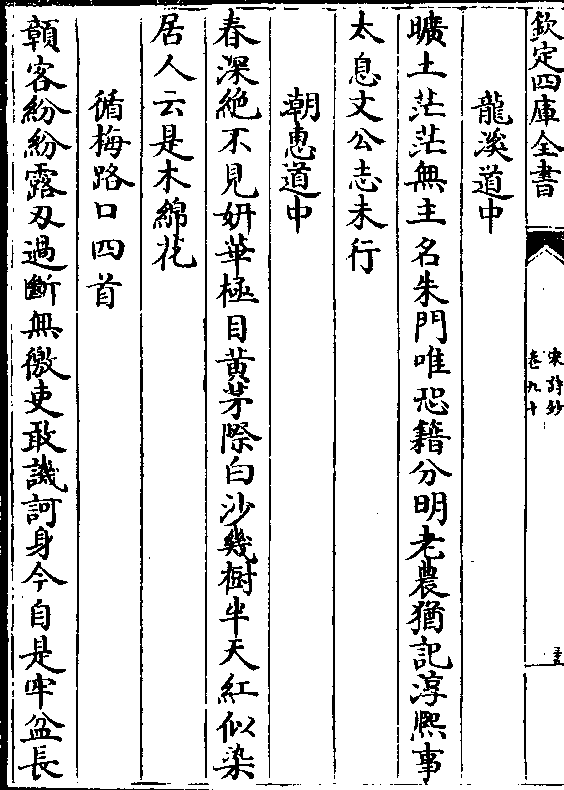 欽定四庫全書
宋詩鈔
卷九十
龍溪道中
曠土茫茫無主名朱門唯恐籍分明老農猶記淳熙事
太息文公志未行
朝惠道中
春深絶不見妍華極目黄茅際白沙幾樹半天紅似染
居人云是木綿花
循梅路口四首
贑客紛紛露刄過斷無徼吏敢譏訶身今自是牢盆長